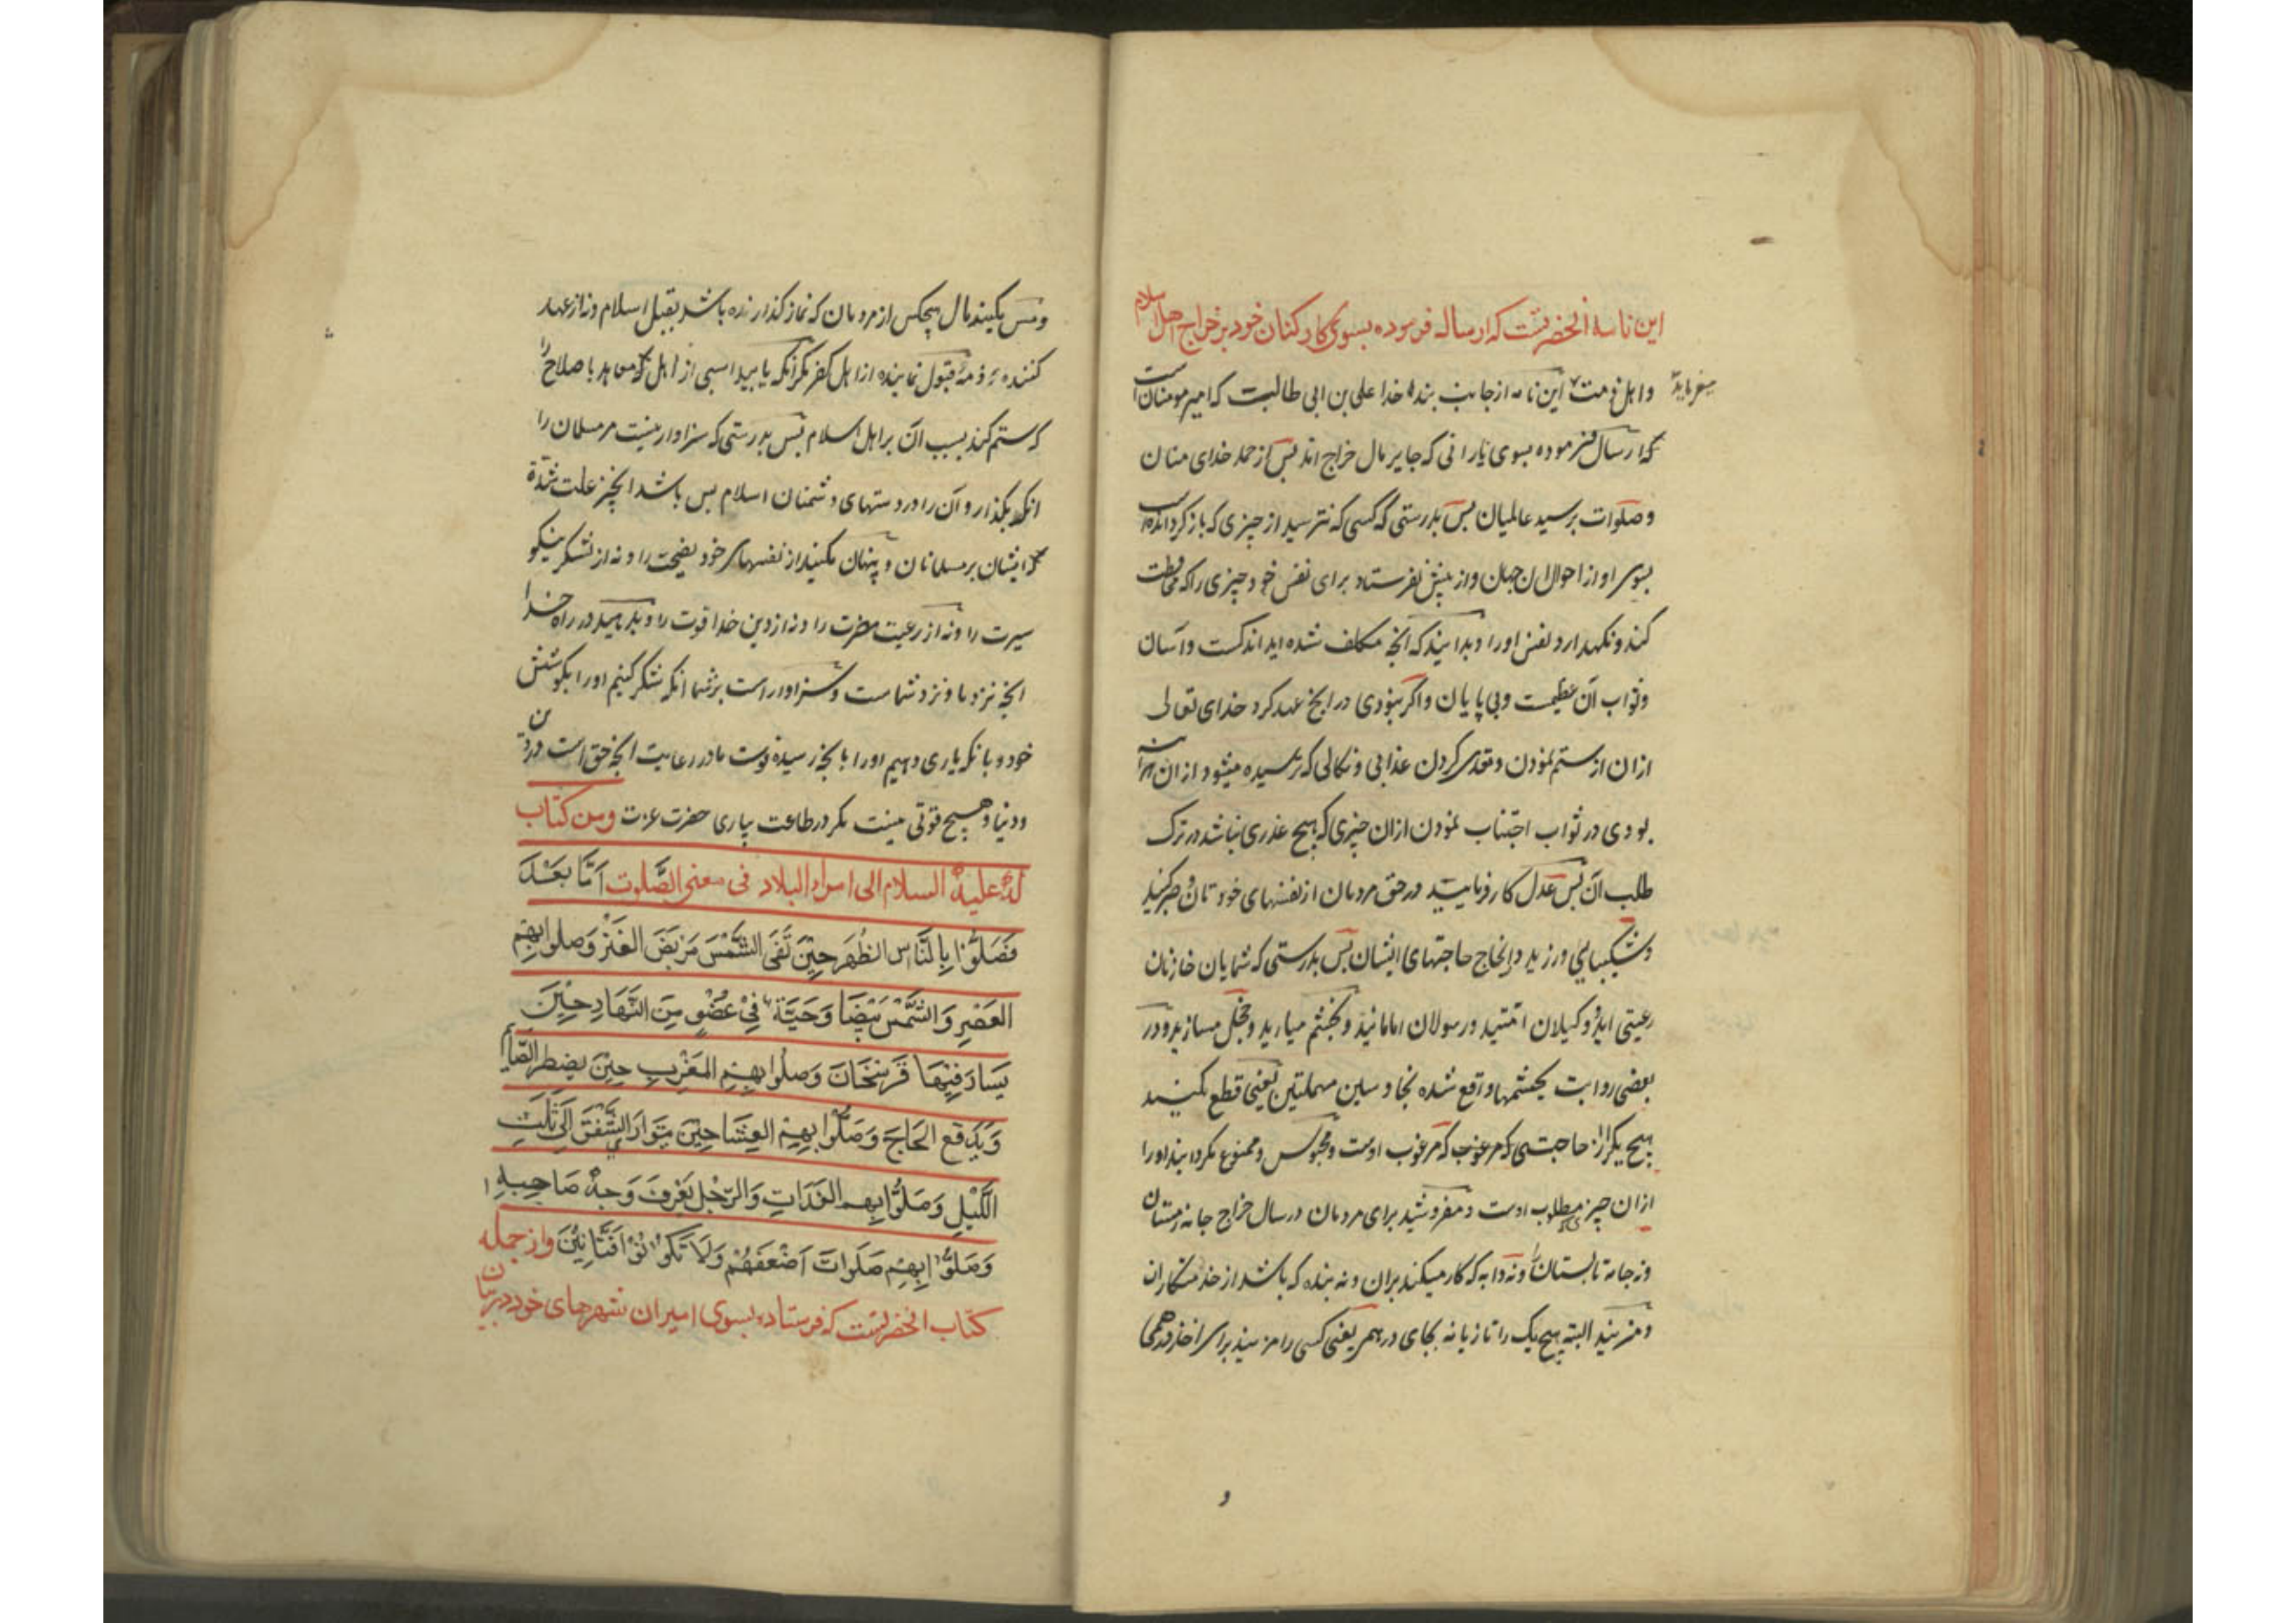 این نامه آنحضرتست که ارساله فرموده بسوی کارکنان خود بر خراج اهل اسلام
میفرماید
و اهل ذمت این نامه از جانب بنده خدا علی بن ابی طالبست که امیر مومنان است
که ارسال فرموده بسوی یارانی که جایر مال خراج اند پس از حمد خدای منان
و صلوات بر سید عالمیان پس بدرستی که کسی که نترسید از چیزی که باز گردانده است
بسوی او از احوال آن جهان و از پیش نفرستاد برای نفس خود چیزی را که محافظت
کند و نگهدارد نفس او را و بدانیند که آنچه مکلف شده اید اندکست و آسان
و ثواب آن عظیمست و بی پایان و اگر نبودی در آنچه نهی کرد خدای تعالی
از آن از ستم نمودن و تعدی کردن عذابی و نکالی که ترسیده میشود از آن هر آینه
بودی در ثواب اجتناب نمودن از آن چیزی که هیچ عذری نباشد در ترک
طلب آن پس عدل کار فرمایید در حق مردمان از نفسهای خودتان و صبر کنید
و شکیبایی ورزید در انجاح حاجتهای ایشان پس بدرستی که شمایان خازنان
رعیتی اید و وکیلان امتید و رسولان امامانید و بخشم میارید و خجل مسازید و در
بعضی روایت واقع شده بحا و سین مهملتین یعنی قطع مکنید
هیچ یک را از حاجتی که مرغوب اوست و محبوس و ممنوع مگردانید او را
از آن چیز که مطلوب اوست و مفروشید برای مردمان در سال خراج جامه زمستان
و نه جامه تابستان را و نه دابه که کار میکنند بران و نه بنده که باشد از خدمتکاران
و مزنید البته هیچ یک را تازیانه بجای درهم یعنی کسی را مزنید برای اخذ درهمی
و
و مس مکیند مال هیچکس از مردمان که نماز گذارنده باشد بقبل اسلام و نه از عهد
کننده که ذمه قبول نماینده از اهل کفر مگر آنکه یابید اسبی از اهل معاهد با صلاح را
که ستم کند بسبب آن بر اهل اسلام پس بدرستی که سزاوار نیست مر مسلمان را
آنکه بگذارد آن را در دستهای دشمنان اسلام پس باشد آنچیز علت شدة
ایشان بر مسلمانان و پنهان مکنید از نفسهای خود نصیحت را و نه از لشکر نیکو
سیرت را و نه از رعیت معونت را و نه از دین خدا قوت را و بدهید در راه خدا
آنچه نزد ما و نزد شماست و سزاوار است بر شما آنکه شکر کنیم او را بکوشش
خود و بانکه یاری دهیم او را بانچه رسیده قوت ما در رعایت آنچه حق است در دین
و دنیا و هیچ قوتی نیست مگر در طاعت بیاری حضرت عزت ومن کتاب
له علیه السلام الی امراء البلاد فی معنی الصلوت اَمَّا بَعْدَ
فَصَلُّوْا بِالنَّاسِ الظُهَرِ حِیْنَ تَفَی الشَّمْسَ مَرْبَضَ العَنْزِ وَصلوا بِهِم
العَصْرِ وَالشَّمْسُ بَیْضَا وَحَیَّة فِیْ عُضْوٍ مِنَ النَّهَارِ حِیْنَ
یُسَارَ فِیْهَا فَرْسَخَانِ وَصلُوا بِهِمْ المَغْرِبِ حِیْنَ یفطر الصَّائم
وَیَدفَع الحَاجَّ وَصَلُّوا بِهِمْ العِشَا حِیْنَ یتوَارَ الشَّفَقُ اِلَی ثُلُثِ
اللَّیْلِ وَصَلُّوا بِهم الغَدَاتِ وَالرَّجُلَ یَعْرِفُ وَجهَ صَاحِبِهِ
وَصَلُّوْا بِهِمْ صَلَواتَ اَضْعَفَهُمْ وَلَا تَکُوْنُوْا فَتَّانِیْنَ واز جمله
کتاب آنحضرتست که فرستاده بسوی امیران شهرهای خود در بیان